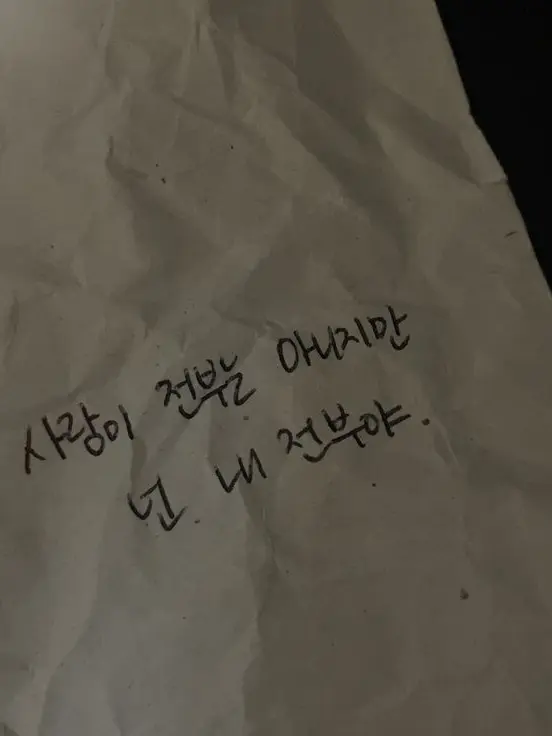 사랑이 전부는 아니지만
넌 내 전부야.